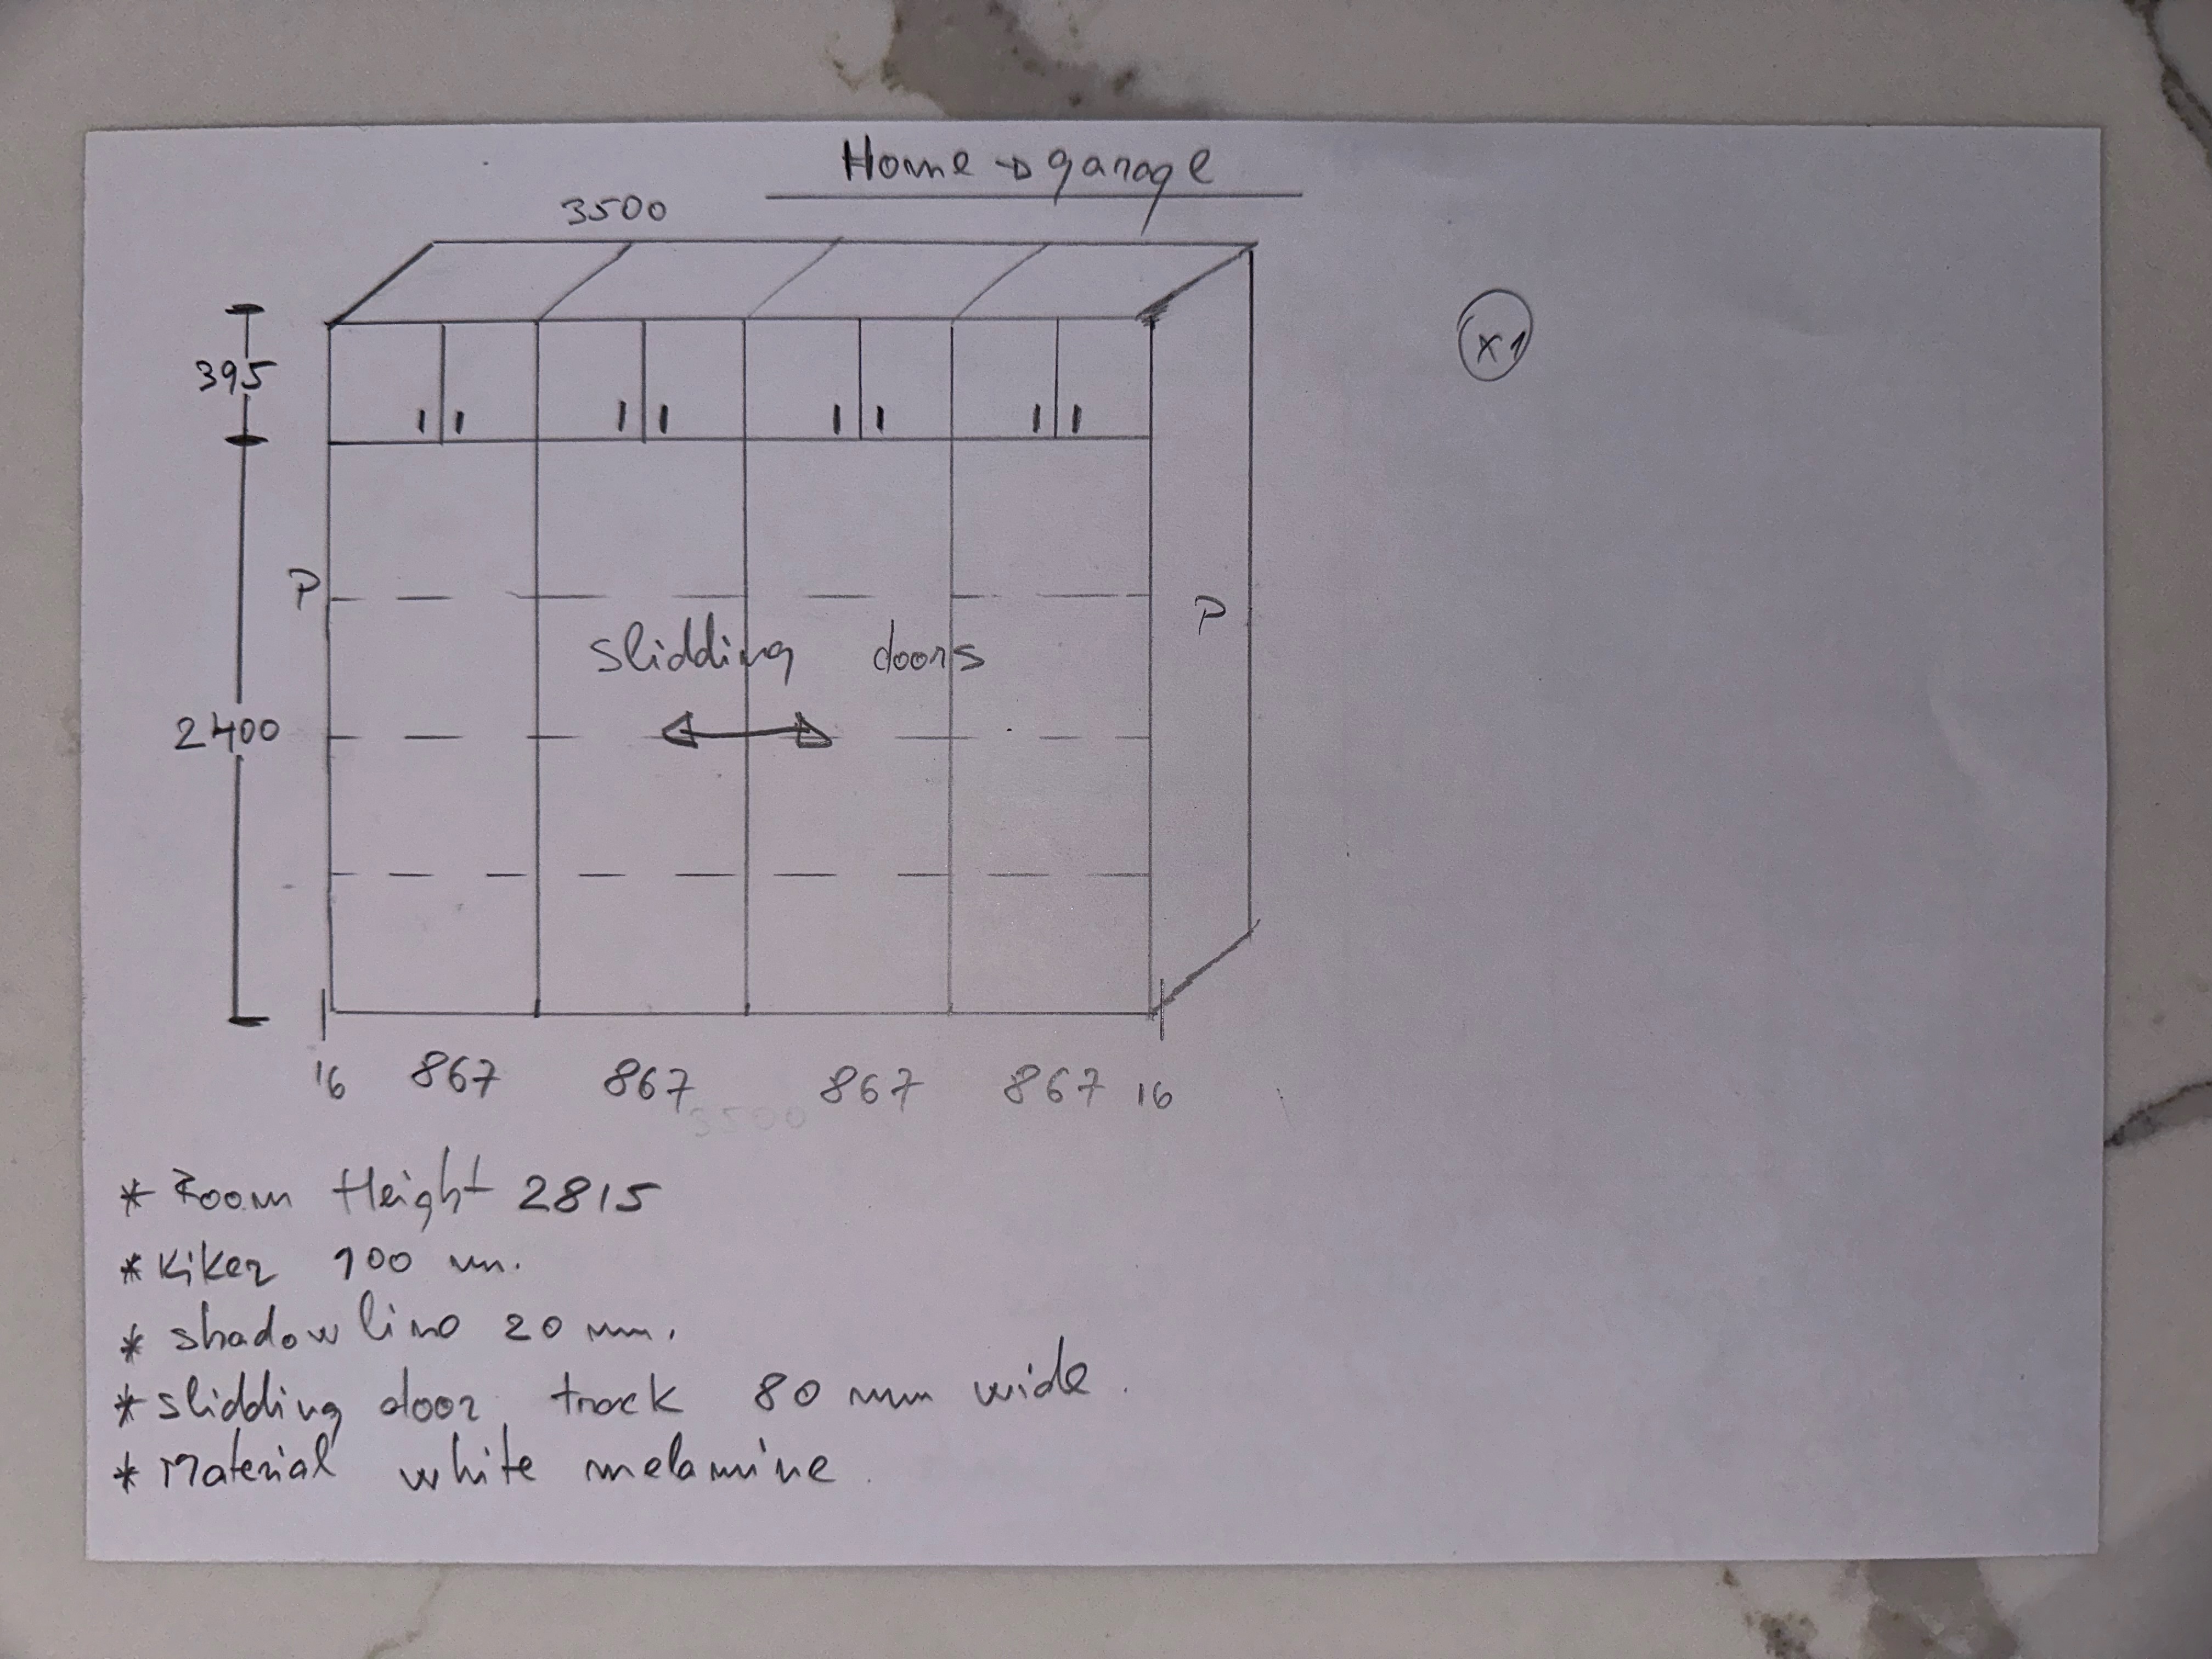 Home → garage
3500
x1
395
P
P
slidding doors
2400
16 867 867 867 867 16
3500
* Room Height 2815
* Kiker 100 mm.
* shadow line 20 mm.
* slidding door track 80 mm wide.
* Material white melamine.